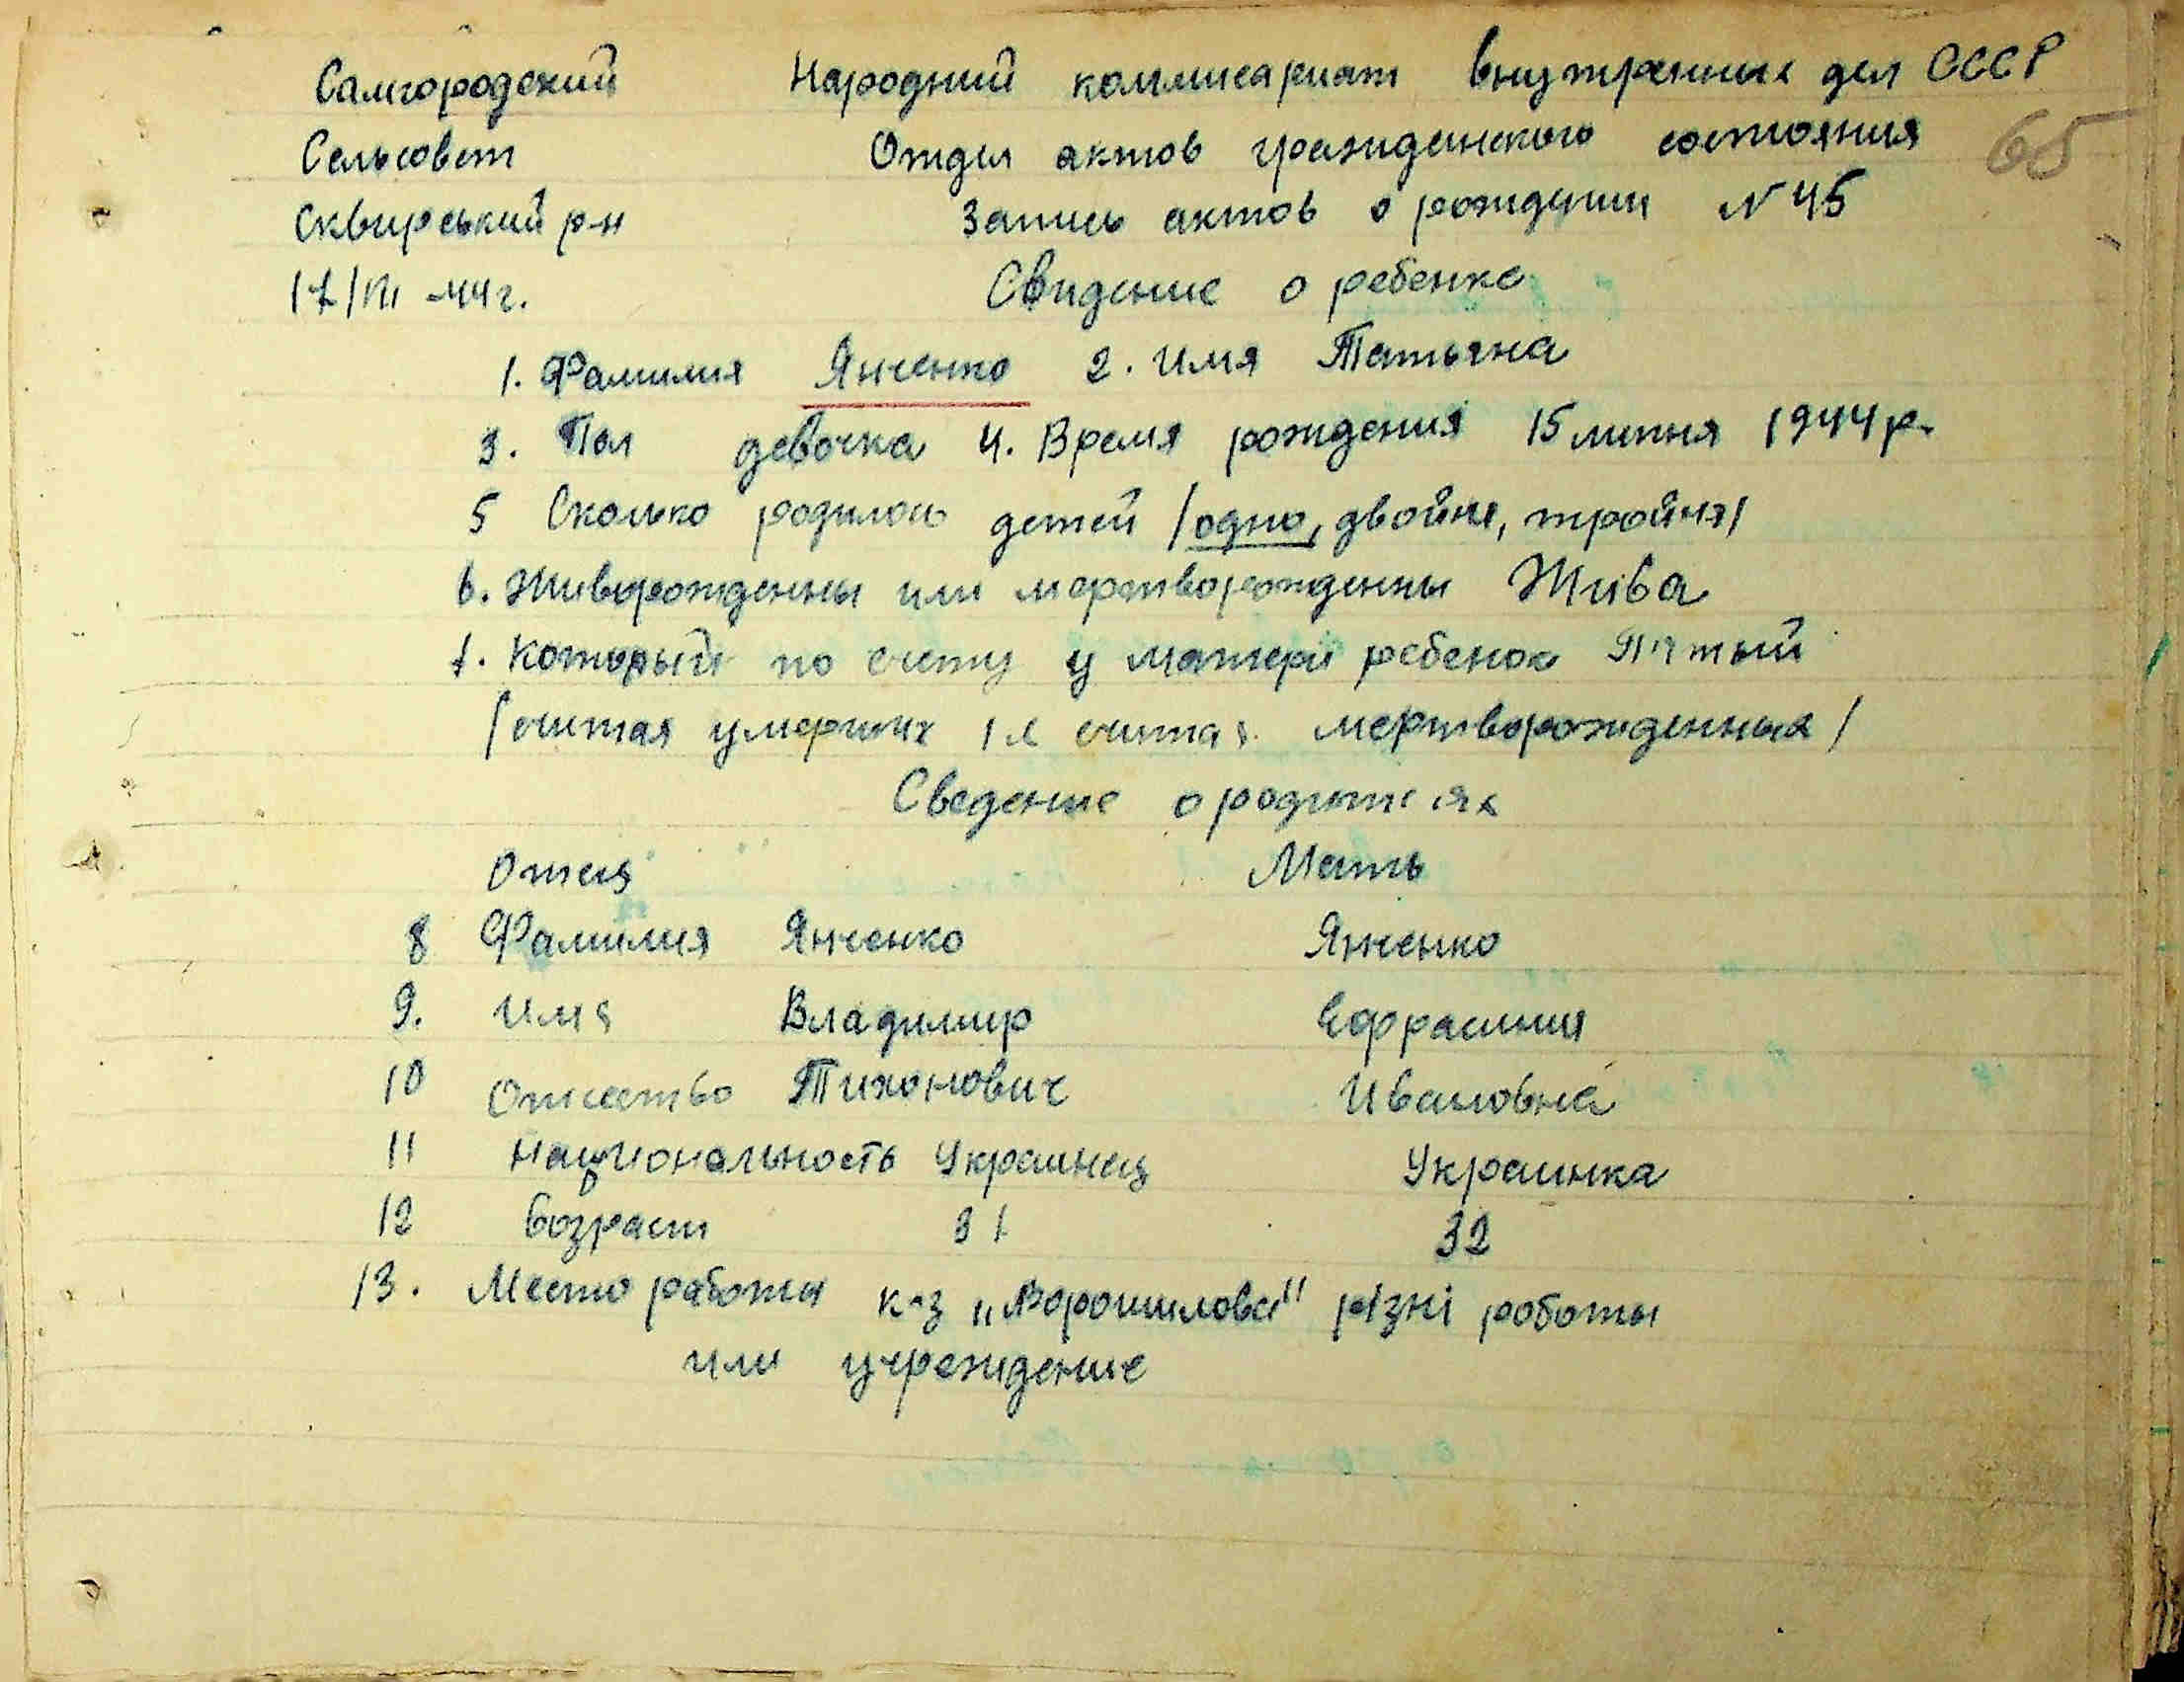 Самгородский Народний коммисариат внутренных дел СССР
65
Сельсовет Отдел актов гражданского состояния
Сквирський р-н Запись актов о рождении N 45
17/VII -44 г. Свидение о ребенке
1. Фамилия Янченко 2. Имя Татьяна
3. Пол девочка 4. Время рождения 15 липня 1944 р.
5 Сколько родилось детей /одно, двойня, тройня/
6. Живорожденны или мертворожденны Жива
7. Который по счету у матери ребенок Пятый
/считая умерших и не считая мертворожденных/
Сведение о родителях
Отец Мать
8 Фамилия Янченко Янченко
9. Имя Владимир Ефрасиния
10 Отчество Тихонович Ивановна
11 Национальность Украинец Украинка
12 Возраст 31 32
13. Место работы к-з "Ворошилова" різні роботы
или учреждение